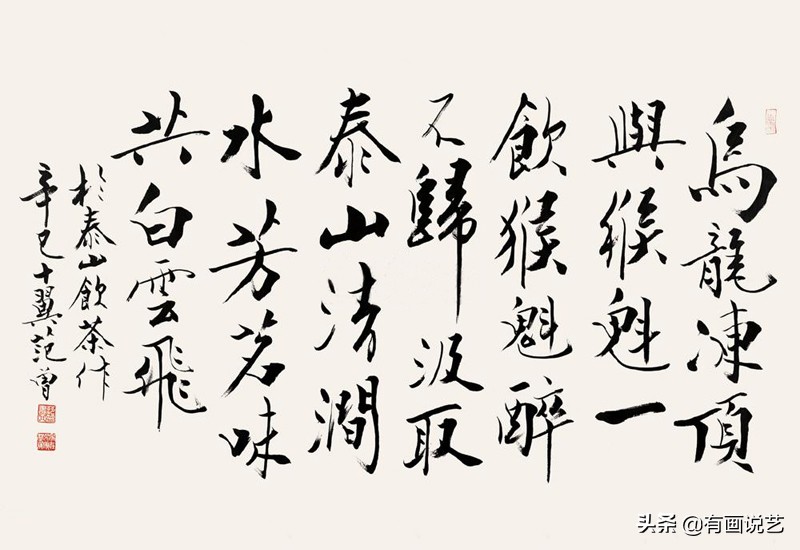 烏龍凍頂
與猴魁一
飲猴魁醉
不歸汲取
泰山清澗
水芳茗味
共白雲飛
於泰山飲茶作
辛巳十翼范曾
头条 @有画说艺